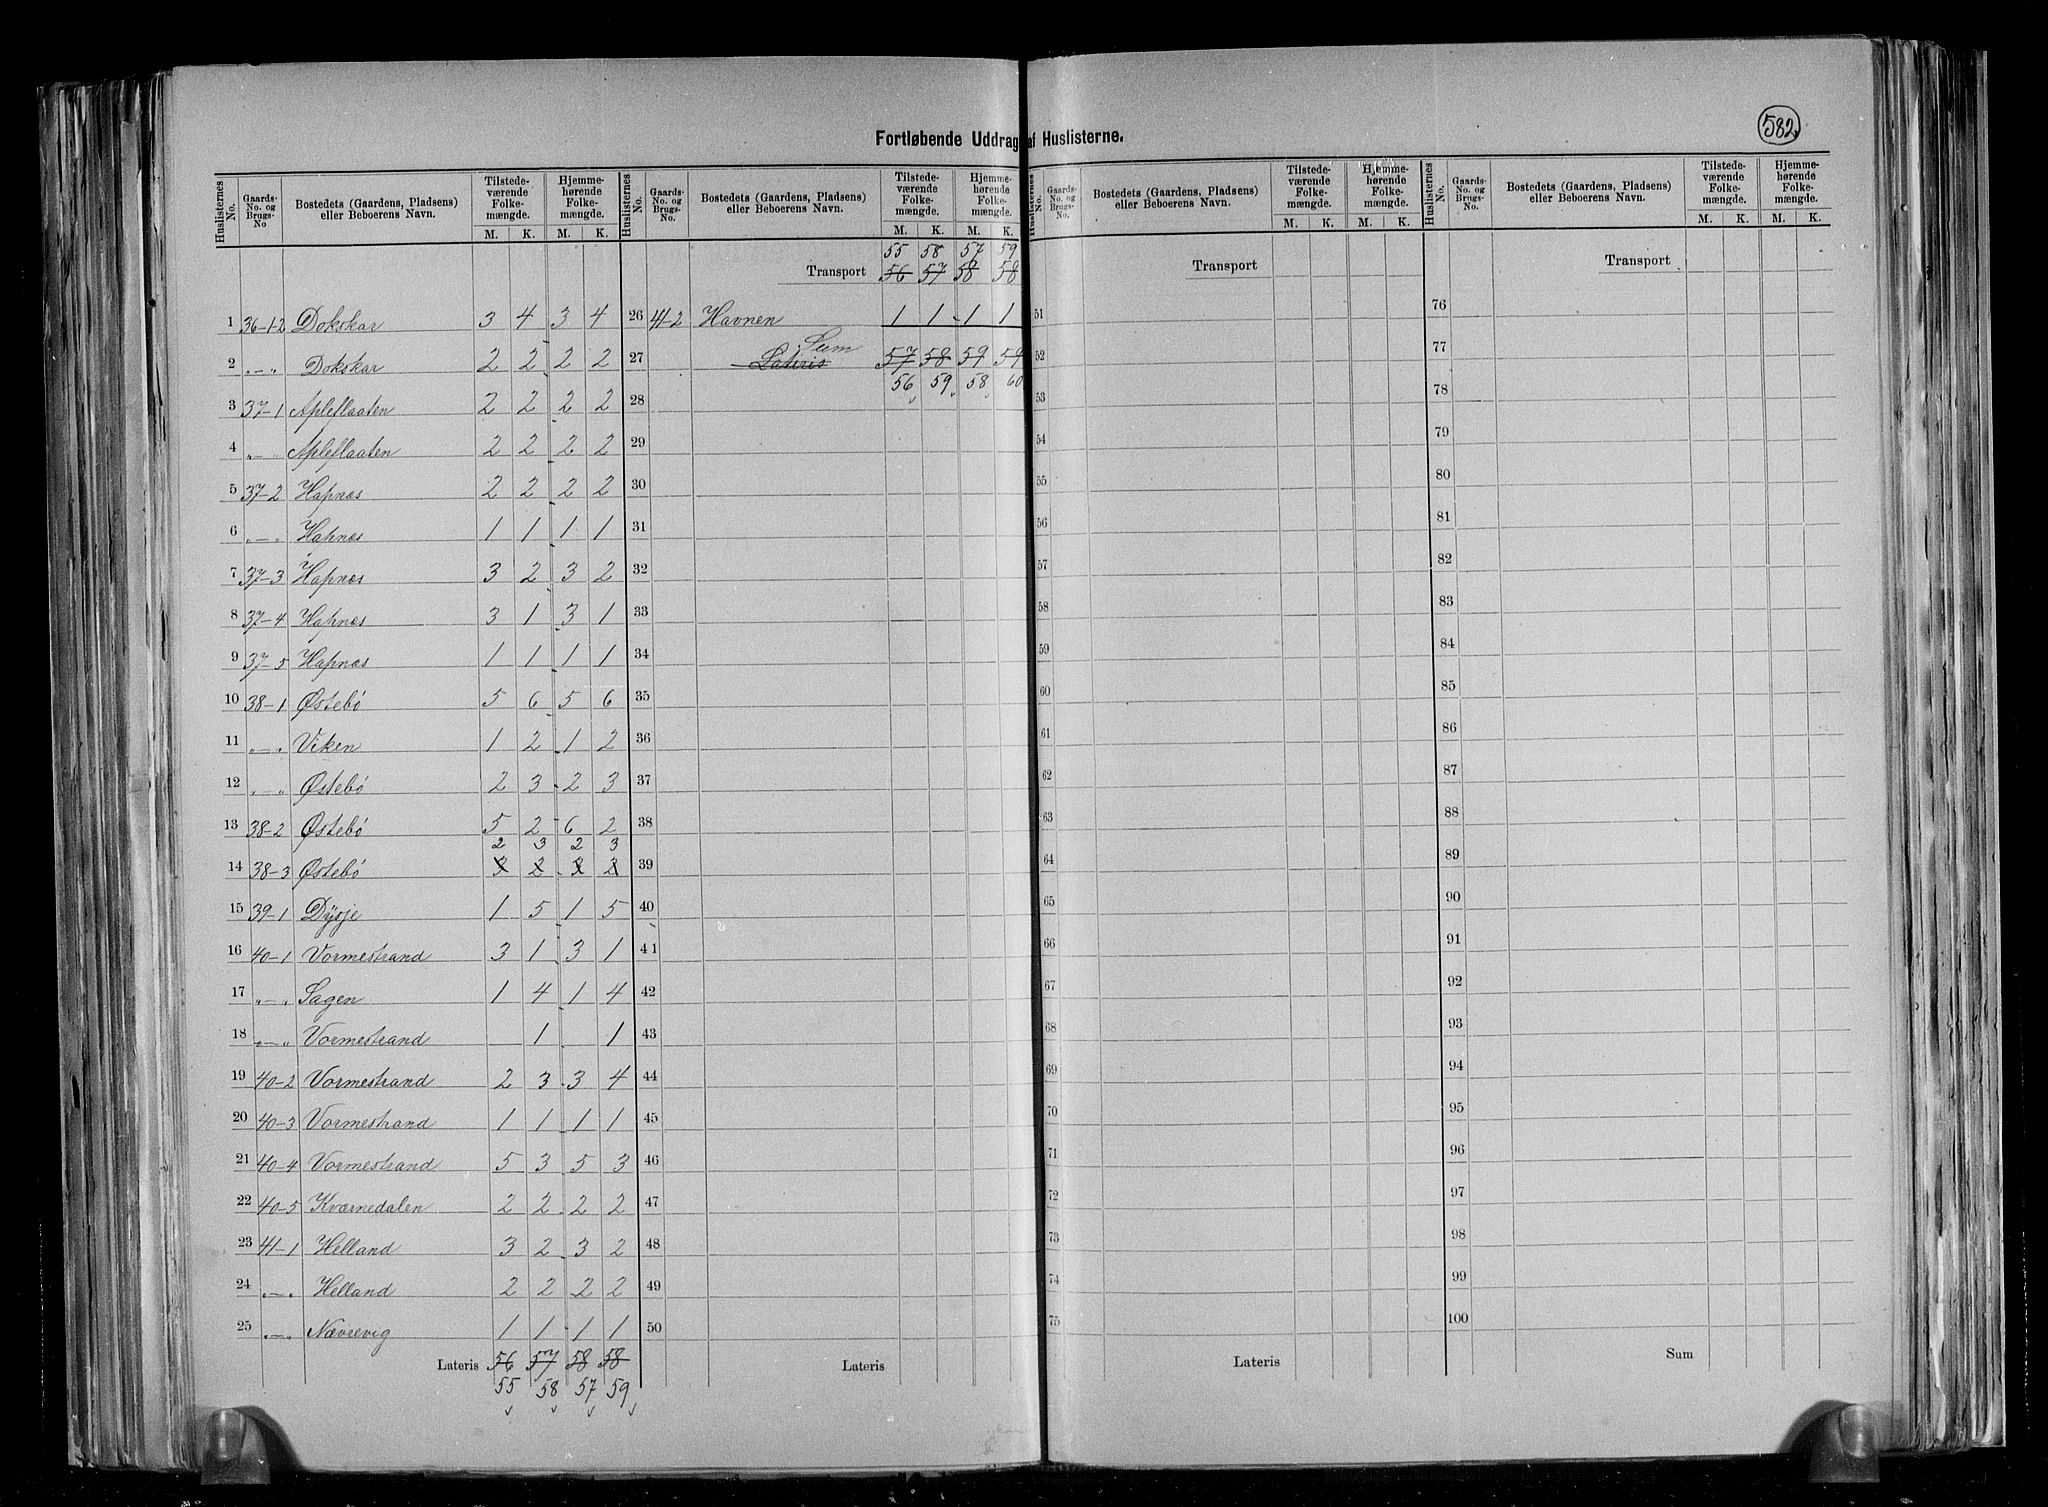 582
Fortløbende Uddrag af Huslisterne.
Huslisternes No. Gaards-No. og Brugs-No Bostedets (Gaardens, Pladsens) eller Beboerens Navn. Tilstedeværende Folkemængde. M. K. Hjemmehørende Folkemængde. M. K.
1 36-1-2 Dokskar 3 4 3 4
2 „-„ Dokskar 2 2 2 2
3 37-1 Apleflaaten 2 2 2 2
4 „-„ Apleflaaten 2 2 2 2
5 37-2 Hapnæs 2 2 2 2
6 „-„ Hapnæs 1 1 1 1
7 37-3 Hapnæs 3 2 3 2
8 37-4 Hapnæs 3 1 3 1
9 37-5 Hapnæs 1 1 1 1
10 38-1 Østebø 5 6 5 6
11 „-„ Viken 1 2 1 2
12 „ „ Østebø 2 3 2 3
13 38-2 Østebø 5 2 6 2
2 3 2 3
14 38-3 Østebø
15 39-1 Dysje 1 5 1 5
16 40-1 Vormestrand 3 1 3 1
17 „-„ Sagen 1 4 1 4
18 „-„ Vormestrand 1 1
19 40-2 Vormestrand 2 3 3 4
20 40-3 Vormestrand 1 1 1 1
21 40-4 Vormestrand 5 3 5 3
22 40-5 Kværnedalen 2 2 2 2
23 41-1 Helland 3 2 3 2
24 „-„ Helland 2 2 2 2
25 „-„ Nævrevig 1 1 1 1
Lateris 56 57 58 58
55 58 57 59
Huslisternes No. Gaards-No. og Brugs-No. Bostedets (Gaardens, Pladsens) eller Beboerens Navn. Tilstedeværende Folkemængde. M. K. Hjemmehørende Folkemængde. M. K.
55 58 57 59
Transport 56 57 58 58
26 41-2 Havnen 1 1 1 1
Sum
27 Lateris 57 58 59 59
56 59 58 60
28
29
30
31
32
33
34
35
36
37
38
39
40
41
42
43
44
45
46
47
48
49
50
Lateris
Huslisternes No. Gaards-No. og Brugs-No. Bostedets (Gaardens, Pladsens) eller Beboerens Navn. Tilstedeværende Folkemængde. M. K. Hjemmehørende Folkemængde. M. K.
Transport
51
52
53
54
55
56
57
58
59
60
61
62
63
64
65
66
67
68
69
70
71
72
73
74
75
Lateris
Huslisternes No. Gaards-No. og Brugs-No. Bostedets (Gaardens, Pladsens) eller Beboerens Navn. Tilstedeværende Folkemængde. M. K. Hjemmehørende Folkemængde. M. K.
Transport
76
77
78
79
80
81
82
83
84
85
86
87
88
89
90
91
92
93
94
95
96
97
98
99
100
Sum